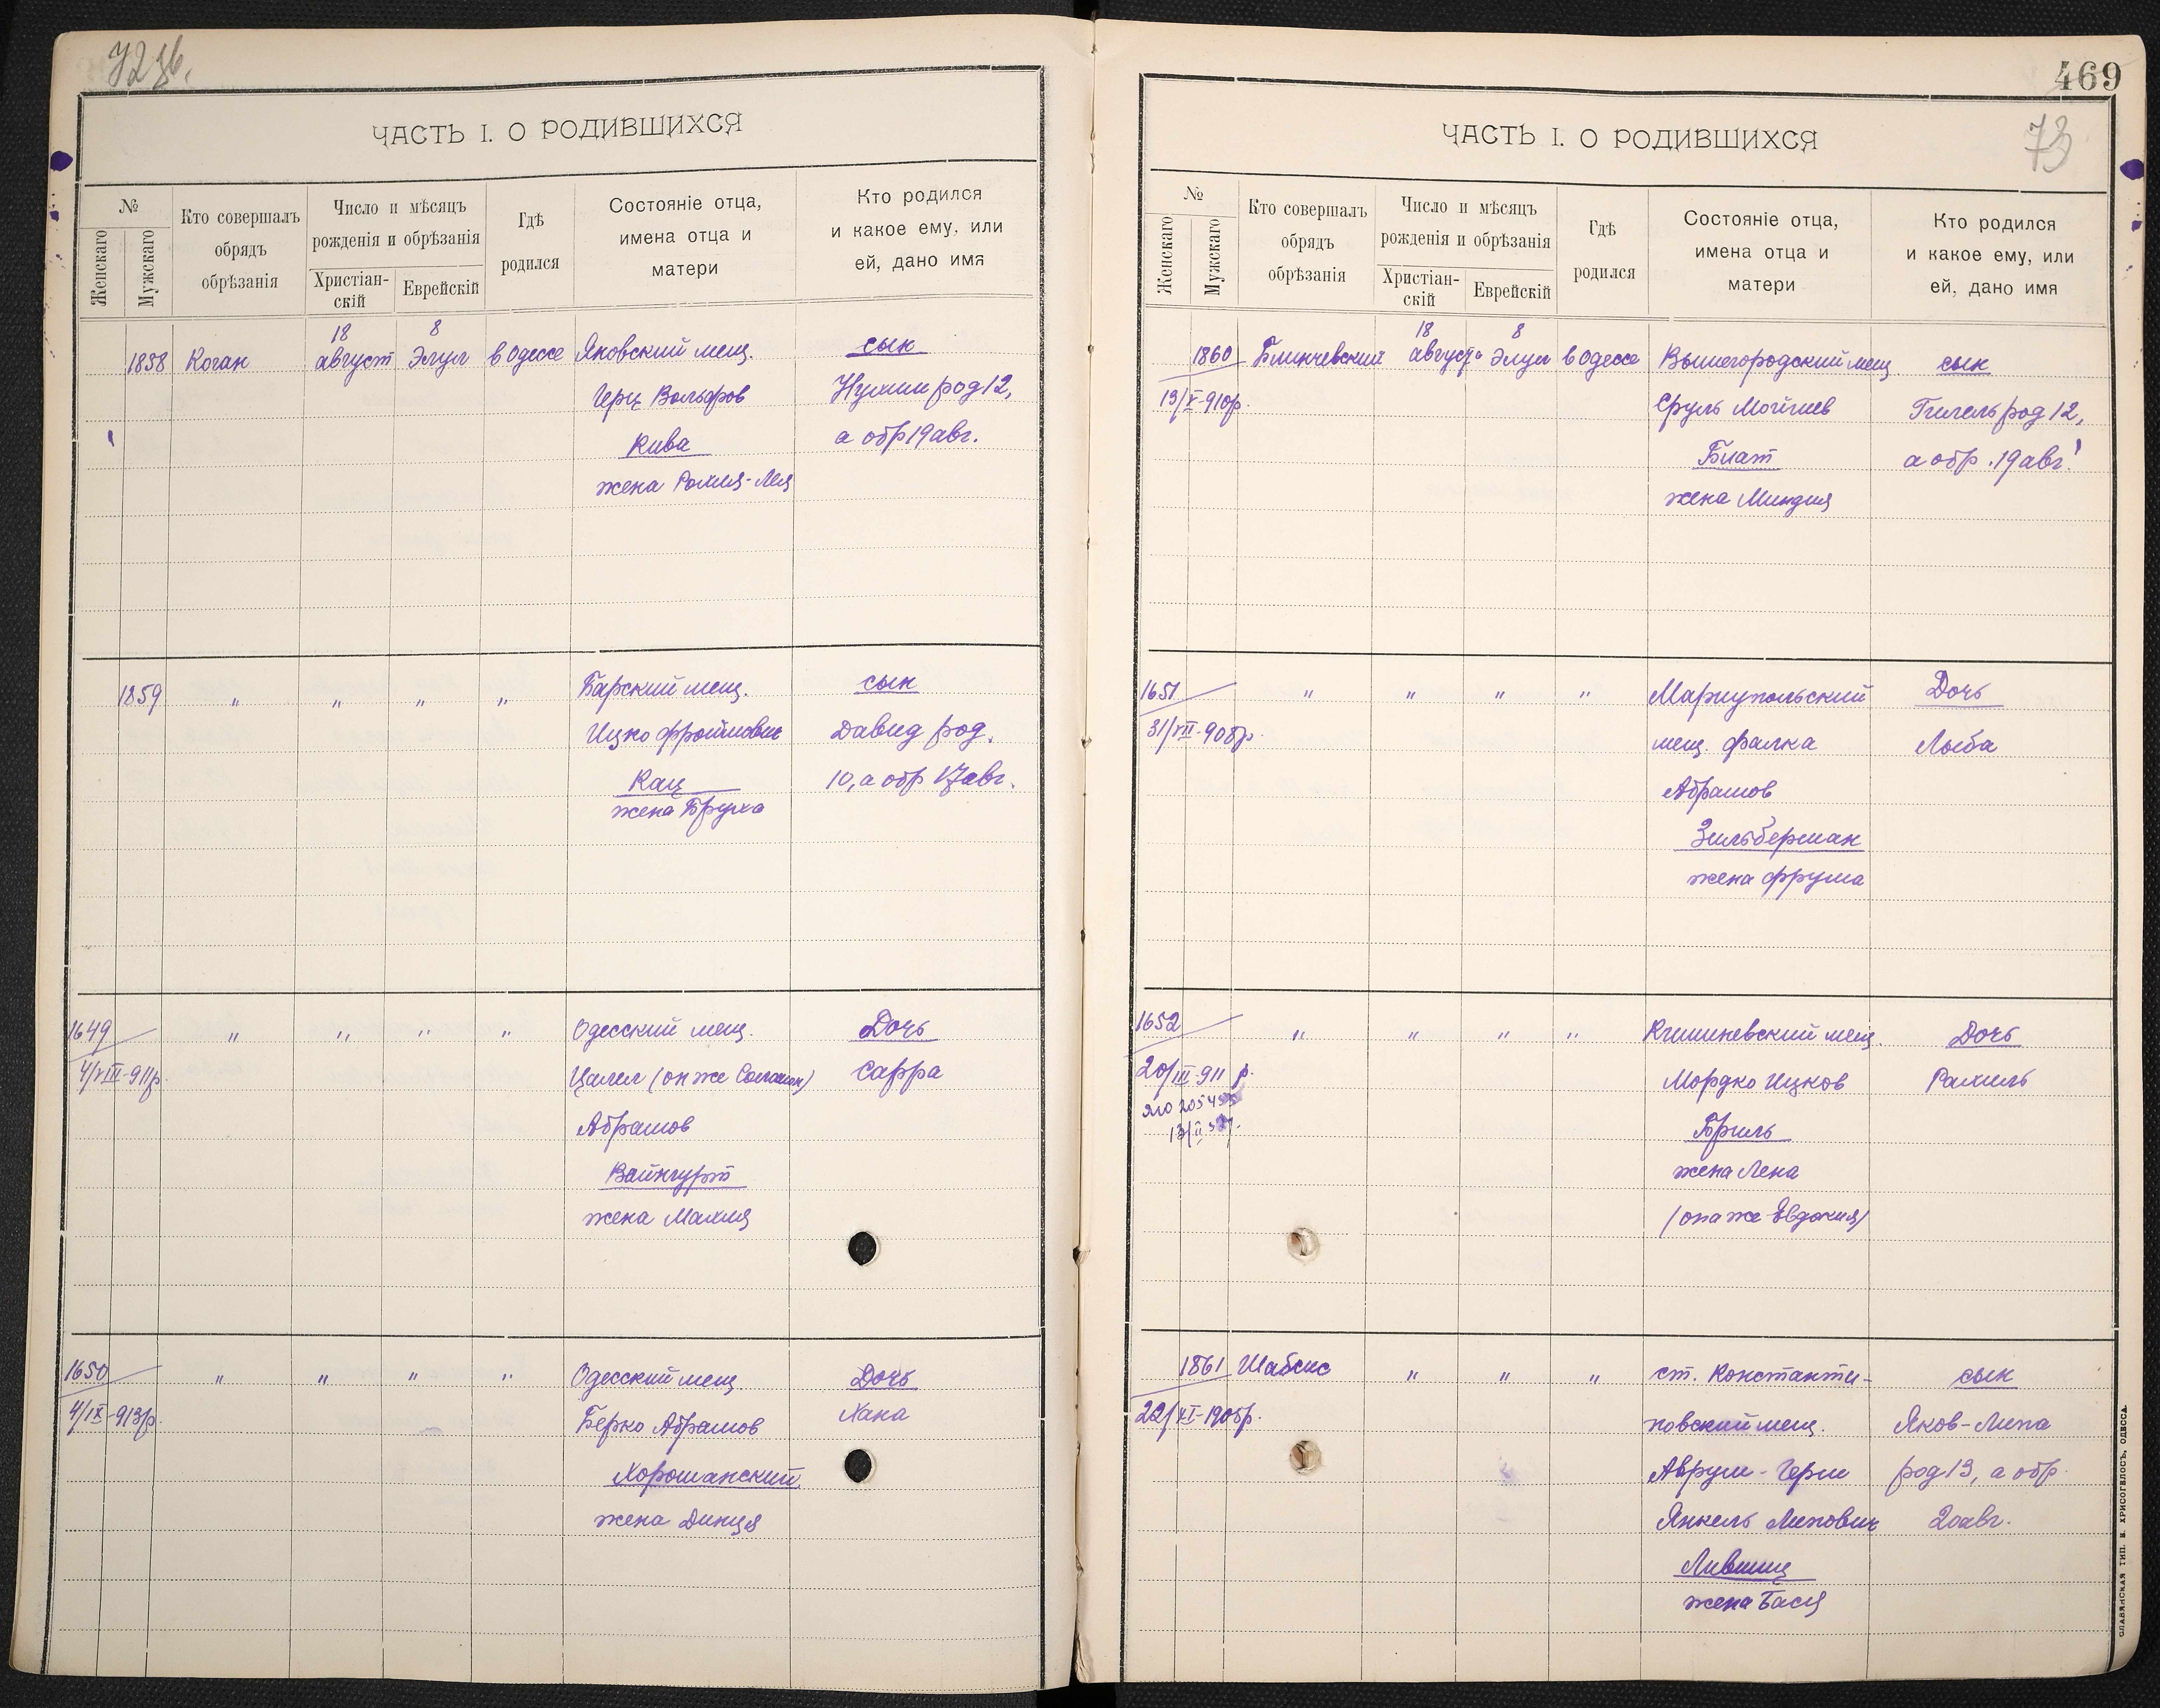 ЧАСТЬ I. О РОДИВШИХСЯ
№
Женскаго
Мужскаго
Кто совершалъ
обрядъ
обрѣзанія
Число и мѣсяцъ
рожденія и обрѣзанія
Христіан-
скій
Еврейскій
Гдѣ
родился
Состояніе отца,
имена отца и
матери
Кто родился
и какое ему, или
ей, дано имя
18 8
1858 Коган август Элул в Одессе Яновский мещ. сын
Герц Вольфов Нухим род 12,
Кива а обр 19 авг.
жена Рохля-Лея
1859 " " " " Барский мещ. сын
Ицко Фроимович Давид род.
Кац 10, а обр 17 авг.
жена Бруха
1649 " " " " Одесский мещ. Дочь
4/VIII-911р. Цалел (он же Соломон) Сарра
Абрамов
Вайнгурт
жена Махля
1650 " " " " Одесский мещ Дочь
4/IX-913р. Берко Абрамов Хана
Хорошанский
жена Динця
469
73
ЧАСТЬ I. О РОДИВШИХСЯ
№
Женскаго
Мужскаго
Кто совершалъ
обрядъ
обрѣзанія
Число и мѣсяцъ
рожденія и обрѣзанія
Христіан-
скій
Еврейскій
Гдѣ
родился
Состояніе отца,
имена отца и
матери
Кто родился
и какое ему, или
ей, дано имя
18 8
1860 августа Элул в Одессе Вышегородский мещ сын
13/X-910р. Сруль Мойшев Гилель род 12,
Блат а обр. 19 авг.
жена Миндля
1651 " " " " Мариупольский Дочь
31/VII-908р. мещ. Фалка Люба
Абрамов
Зильберман
жена Фрума
1652 " " " " Кишиневский мещ. Дочь
20/III-911 р. Мордко Ицков Рахиль
Бриль
жена Лена
(она же Евдокия)
1861 Шабсис " " " ст. Константи- сын
22/XI-1905р. новский мещ. Яков-Липа
Аврум-Герш род 13, а обр.
Янкель Липович 20 авг.
Лившиц
жена Бася
СЛАВЯНСКАЯ ТИП. Н. ХРИСОГЕЛОСЪ, ОДЕССА.